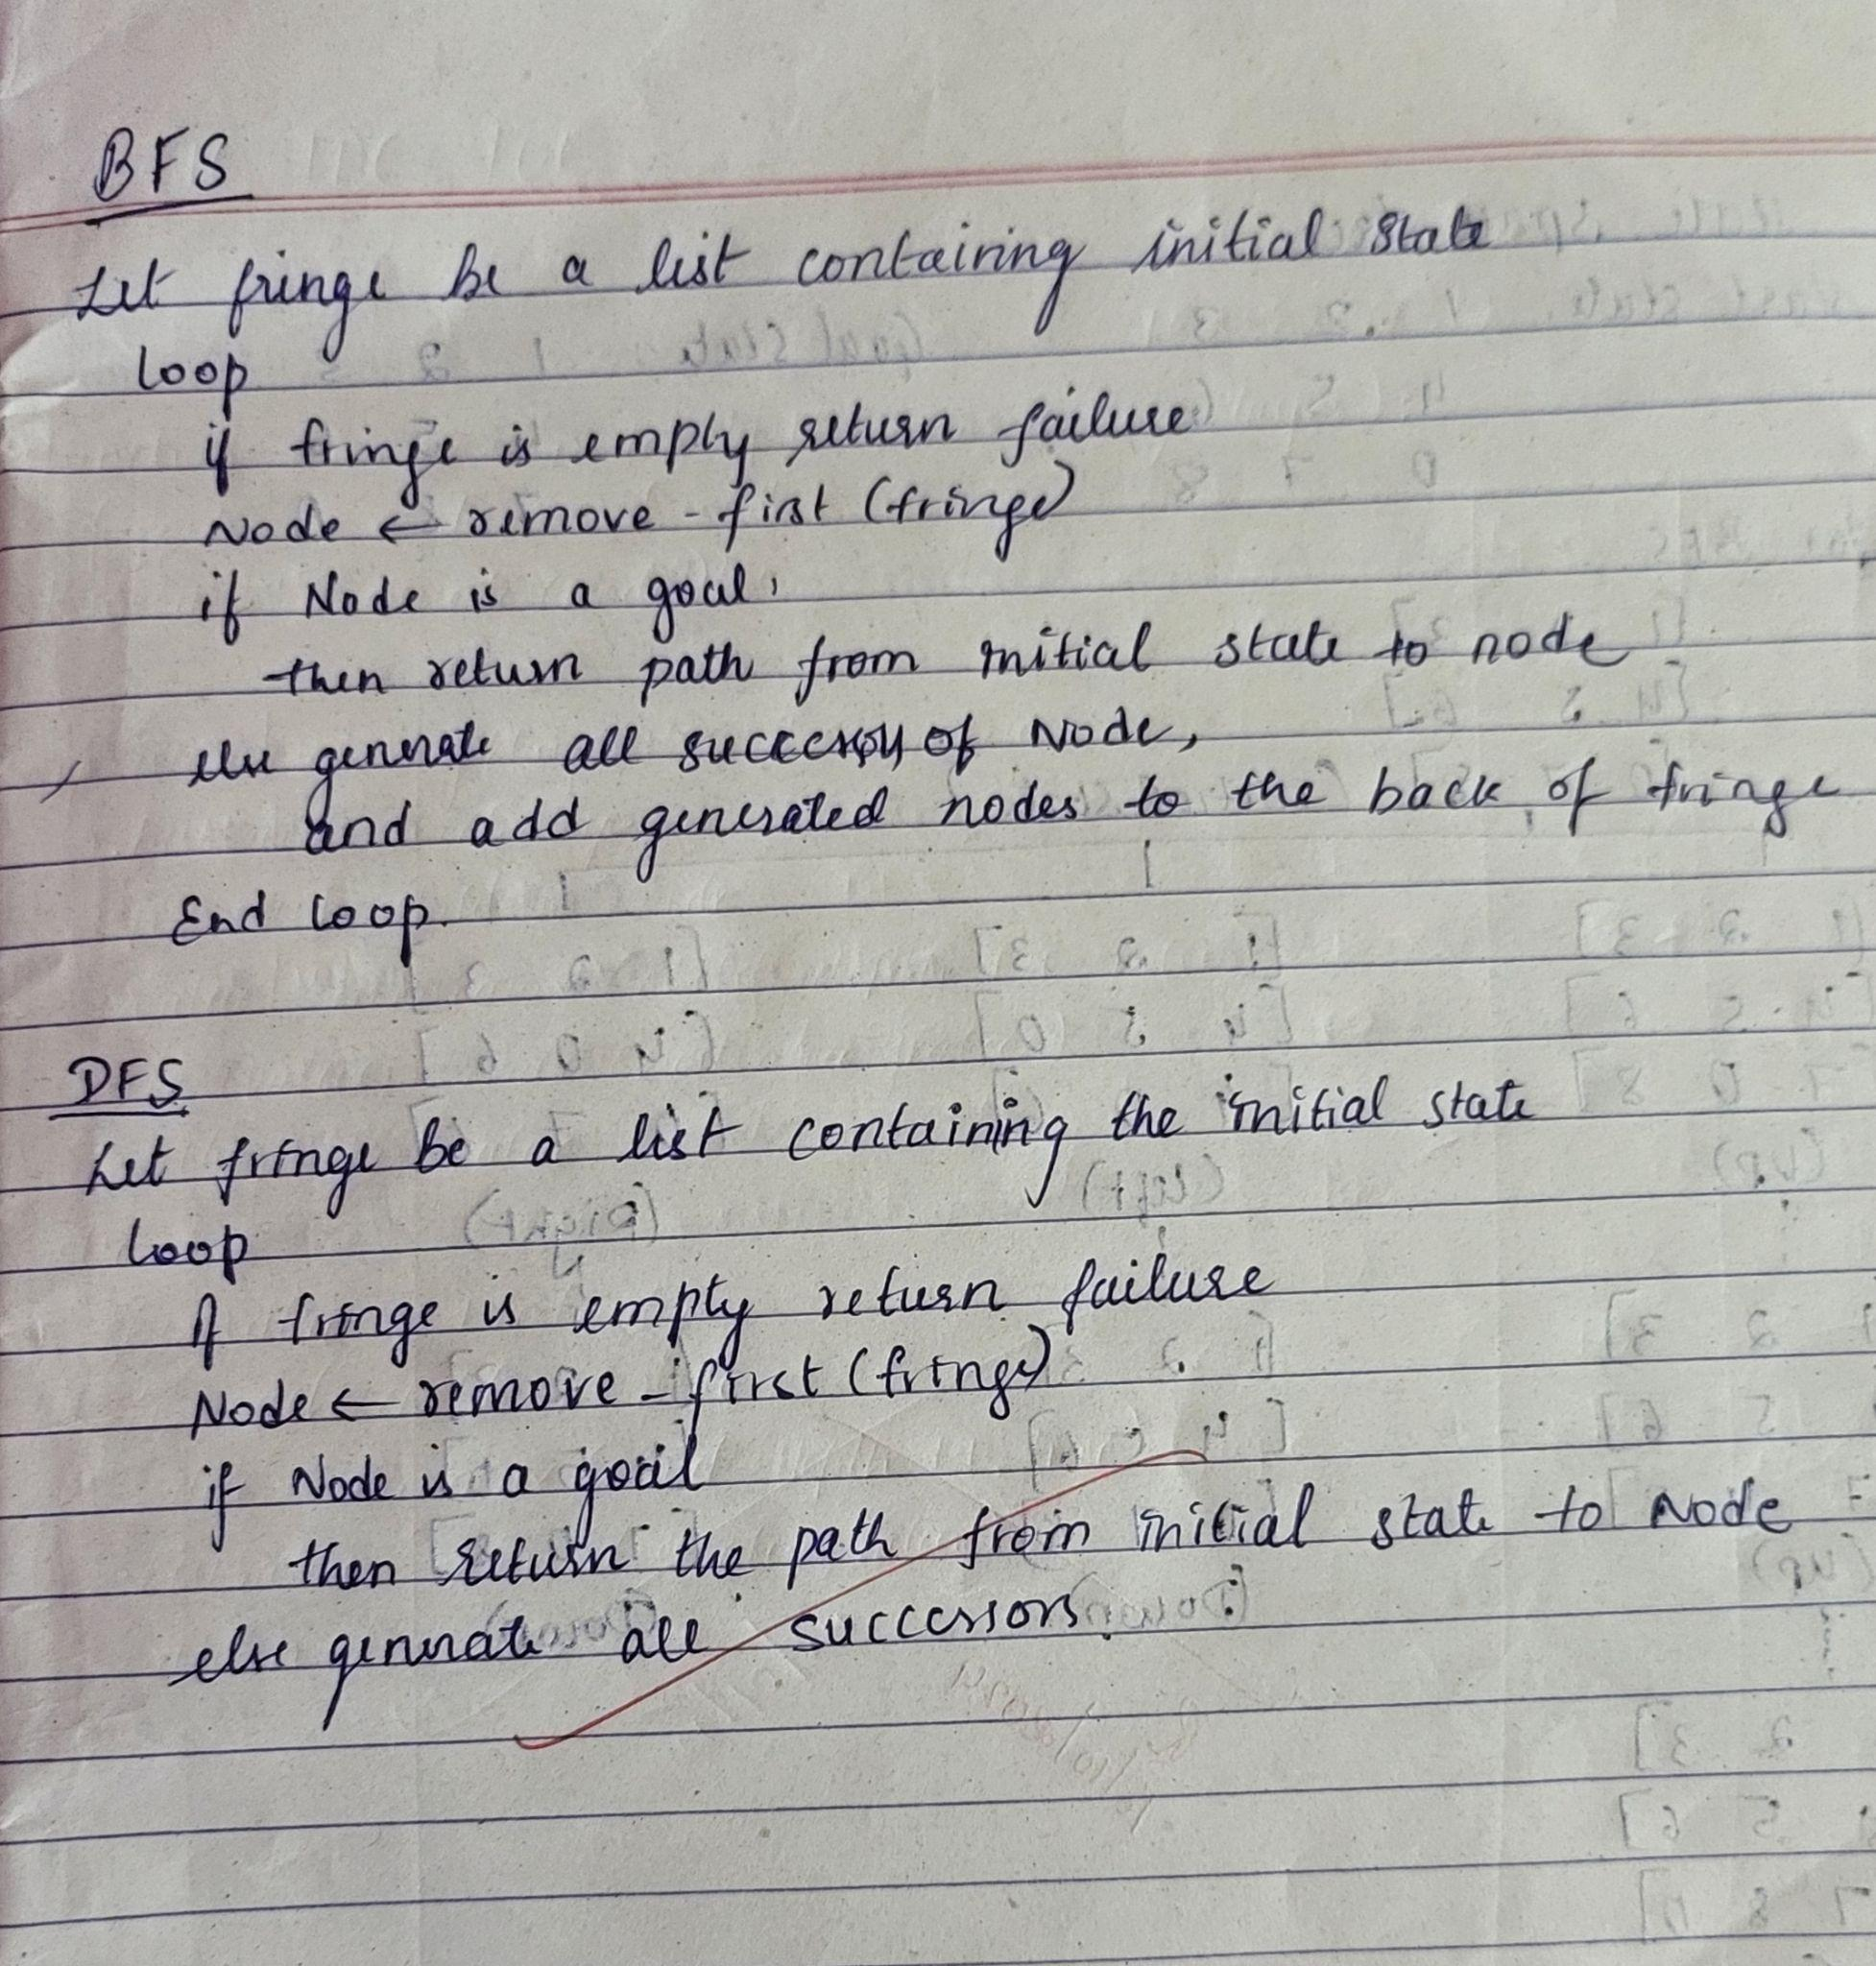 BFS
Let fringe be a list containing initial state
loop
if fringe is empty return failure
Node ← remove - first (fringe)
if Node is a goal,
then return path from initial state to node
else generate all successors of Node,
and add generated nodes to the back of fringe
End loop.
DFS
Let fringe be a list containing the initial state
loop
if fringe is empty return failure
Node ← remove - first (fringe)
if Node is a goal
then return the path from initial state to Node
else generate all successors.